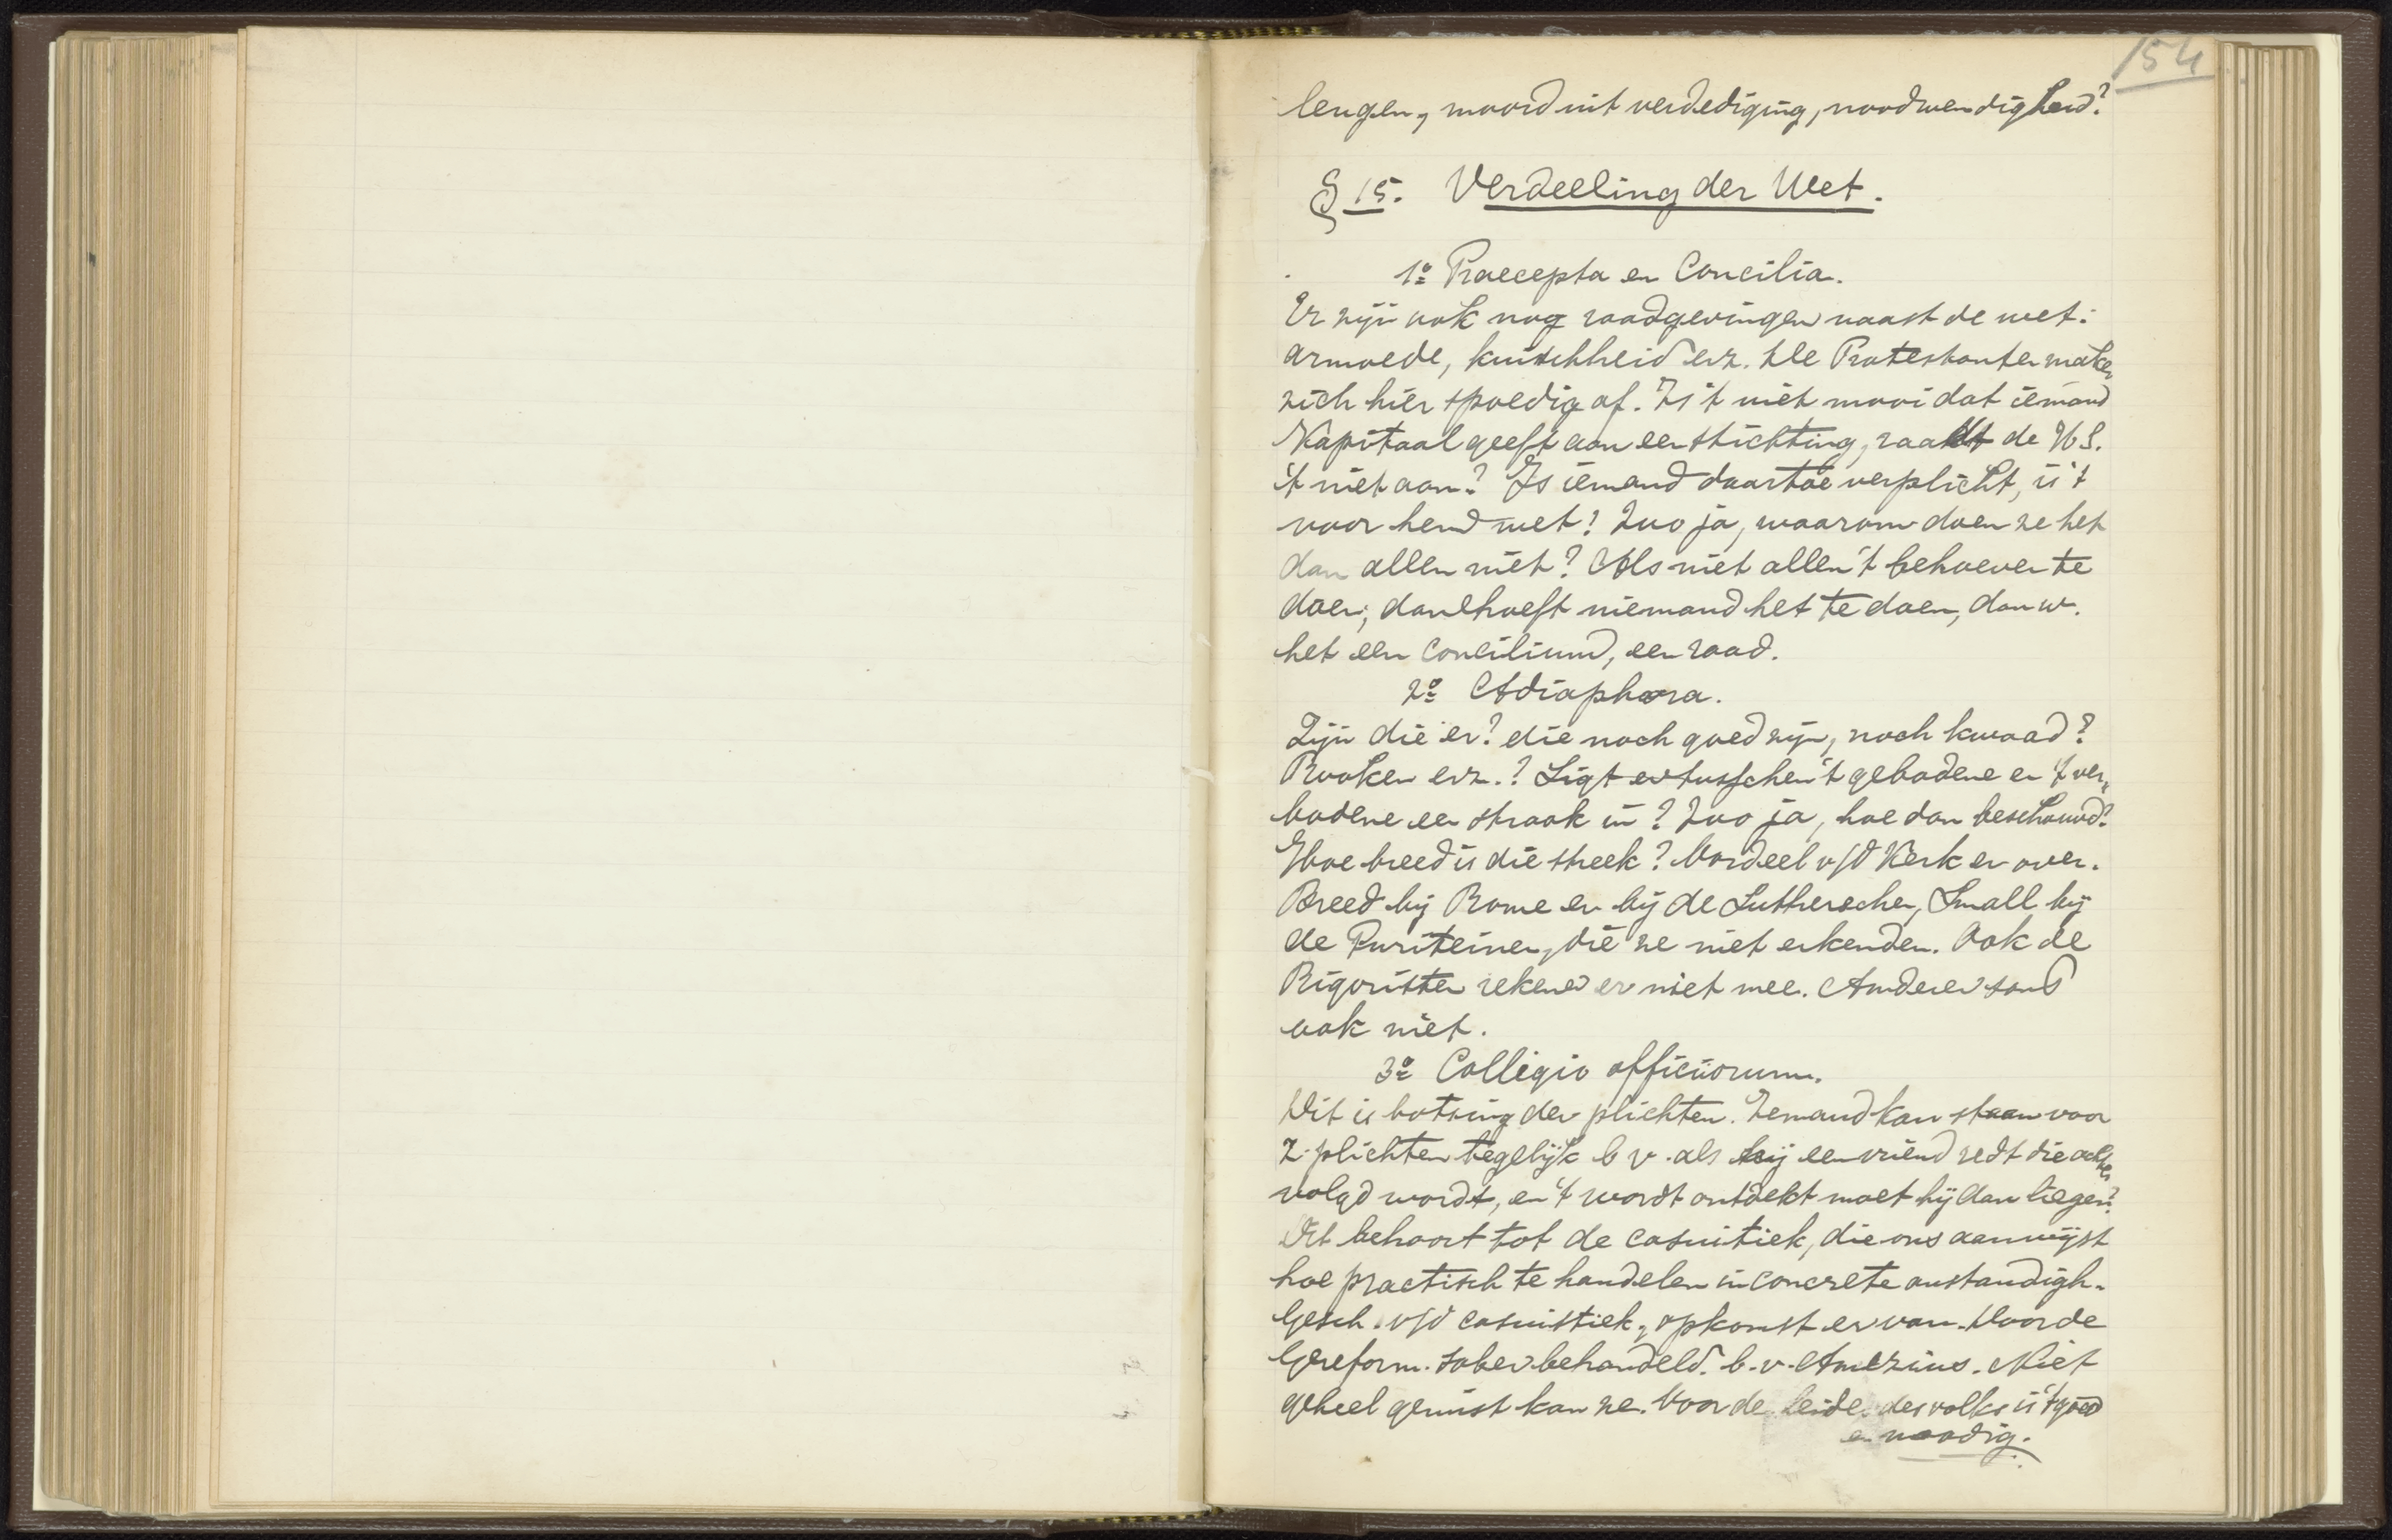 154
leugen, moord uit verdediging, noodwendigheid?
§ 15. Verdeeling der Wet.
1º Praecepta en Concilia.
Er zijn ook nog raadgevingen naast de wet:
armoede, kuischheid enz. De Protestanten maken
zich hier spoedig af. Is 't niet mooi dat iemand
Kapitaal geeft aan een stichting, raadt de H S.
't niet aan? Is iemand daartoe verplicht, is 't
voor hem wet? Zoo ja, waarom doen ze het
dan allen niet? Als niet allen 't behoeven te
doen, dan hoeft niemand het te doen, dan w.
het een Concilium, een raad.
2º Adiaphora.
Zijn die er? die noch goed zijn, noch kwaad?
Rooken enz.? Ligt er tusschen 't gebodene en 't ver-
bodene een strook in? Zoo ja, hoe dan beschouwd?
Hoe breed is die streek? Oordeel v/d Kerk er over.
Breed bij Rome en bij de Lutherschen, Smal bij
de Puriteinen, die ze niet erkenden. Ook de
Rigoristen rekenen er niet mee. Anderen soms
ook niet.
3º Colligio officiorum.
Dit is botsing der plichten. Iemand kan staan voor
2 plichten tegelijk b v. als hij een vriend redt die achter
volgd wordt, en 't wordt ontdekt moet hij dan liegen?
Dit behoort tot de casuitiek, die ons aanwijst
hoe practisch te handelen in concrete omstandigh.
Gesch. v/d casuistiek, opkomst er van. Door de
Gereform. sober behandeld. b.v. Amezius. Niet
geheel gemist kan ze. Voor de leide. des volks is 't goed
en noodig.